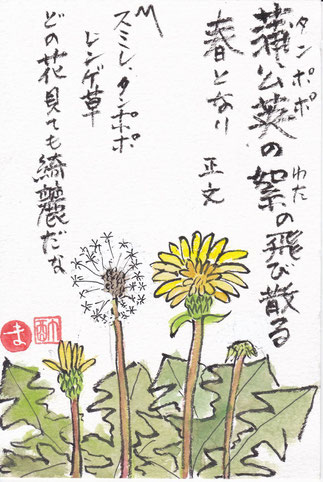 タンポポ
蒲公英の絮の飛び散る
わた
春となり 正文
〽
スミレ、タンポポ
レンゲ草
どの花見ても綺麗だな
ま